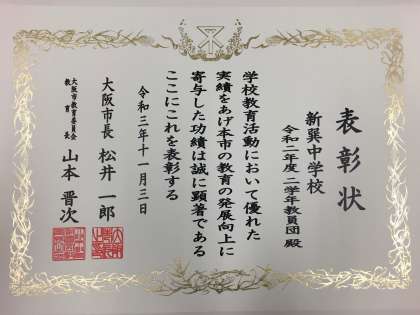 表彰状
新巽中学校
令和二年度 二学年教員団 殿
学校教育活動において優れた
実績をあげ本市の教育の発展向上に
寄与した功績は誠に顕著である
ここにこれを表彰する
令和三年十一月三日
大阪市長 松井 一郎
大阪市教育委員会
教育長 山本 晋次